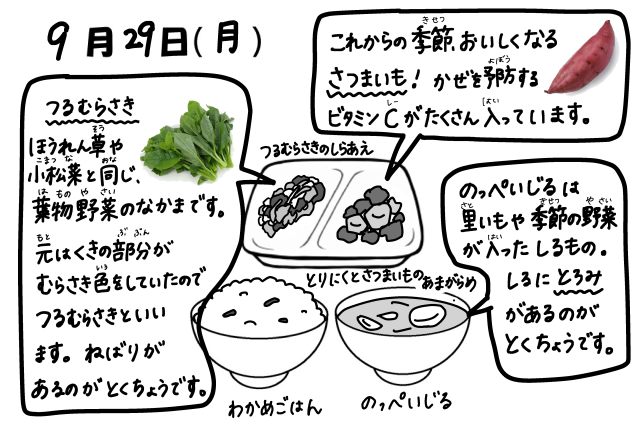 9月29日(月)
これからの季節、おいしくなる
さつまいも！かぜを予防する
ビタミンCがたくさん入っています。
つるむらさき
ほうれん草や
小松菜と同じ、
葉物野菜のなかまです。
元はくきの部分が
むらさき色をしていたので
つるむらさきといい
ます。ねばりが
あるのがとくちょうです。
つるむらさきのしらあえ
とりにくとさつまいものあまがらめ
わかめごはん
のっぺいじる
のっぺいじるは
里いもや季節の野菜
が入ったしるもの。
しるにとろみ
があるのが
とくちょうです。